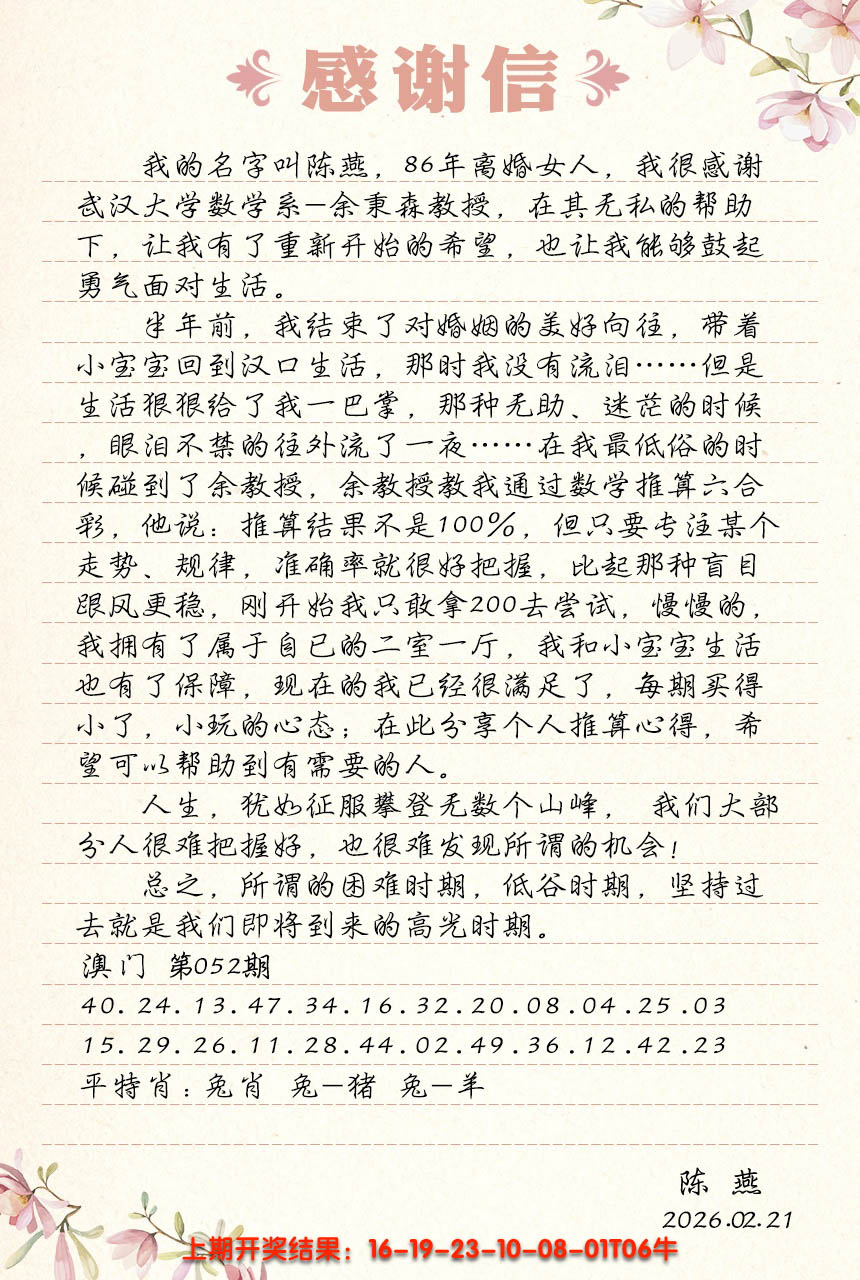 感谢信
我的名字叫陈燕，86年离婚女人，我很感谢
武汉大学数学系—余秉森教授，在其无私的帮助
下，让我有了重新开始的希望，也让我能够鼓起
勇气面对生活。
半年前，我结束了对婚姻的美好向往，带着
小宝宝回到汉口生活，那时我没有流泪……但是
生活狠狠给了我一巴掌，那种无助、迷茫的时候
，眼泪不禁的往外流了一夜……在我最低俗的时
候碰到了余教授，余教授教我通过数学推算六合
彩，他说：推算结果不是100%，但只要专注某个
走势、规律，准确率就很好把握，比起那种盲目
跟风更稳，刚开始我只敢拿200去尝试，慢慢的，
我拥有了属于自已的二室一厅，我和小宝宝生活
也有了保障，现在的我已经很满足了，每期买得
小了，小玩的心态；在此分享个人推算心得，希
望可以帮助到有需要的人。
人生，犹如征服攀登无数个山峰， 我们大部
分人很难把握好，也很难发现所谓的机会！
总之，所谓的困难时期，低谷时期，坚持过
去就是我们即将到来的高光时期。
澳门 第052期
40.24.13.47.34.16.32.20.08.04.25.03
15.29.26.11.28.44.02.49.36.12.42.23
平特肖：兔肖 兔—猪 兔—羊
陈 燕
2026.02.21
上期开奖结果：16-19-23-10-08-01T06牛